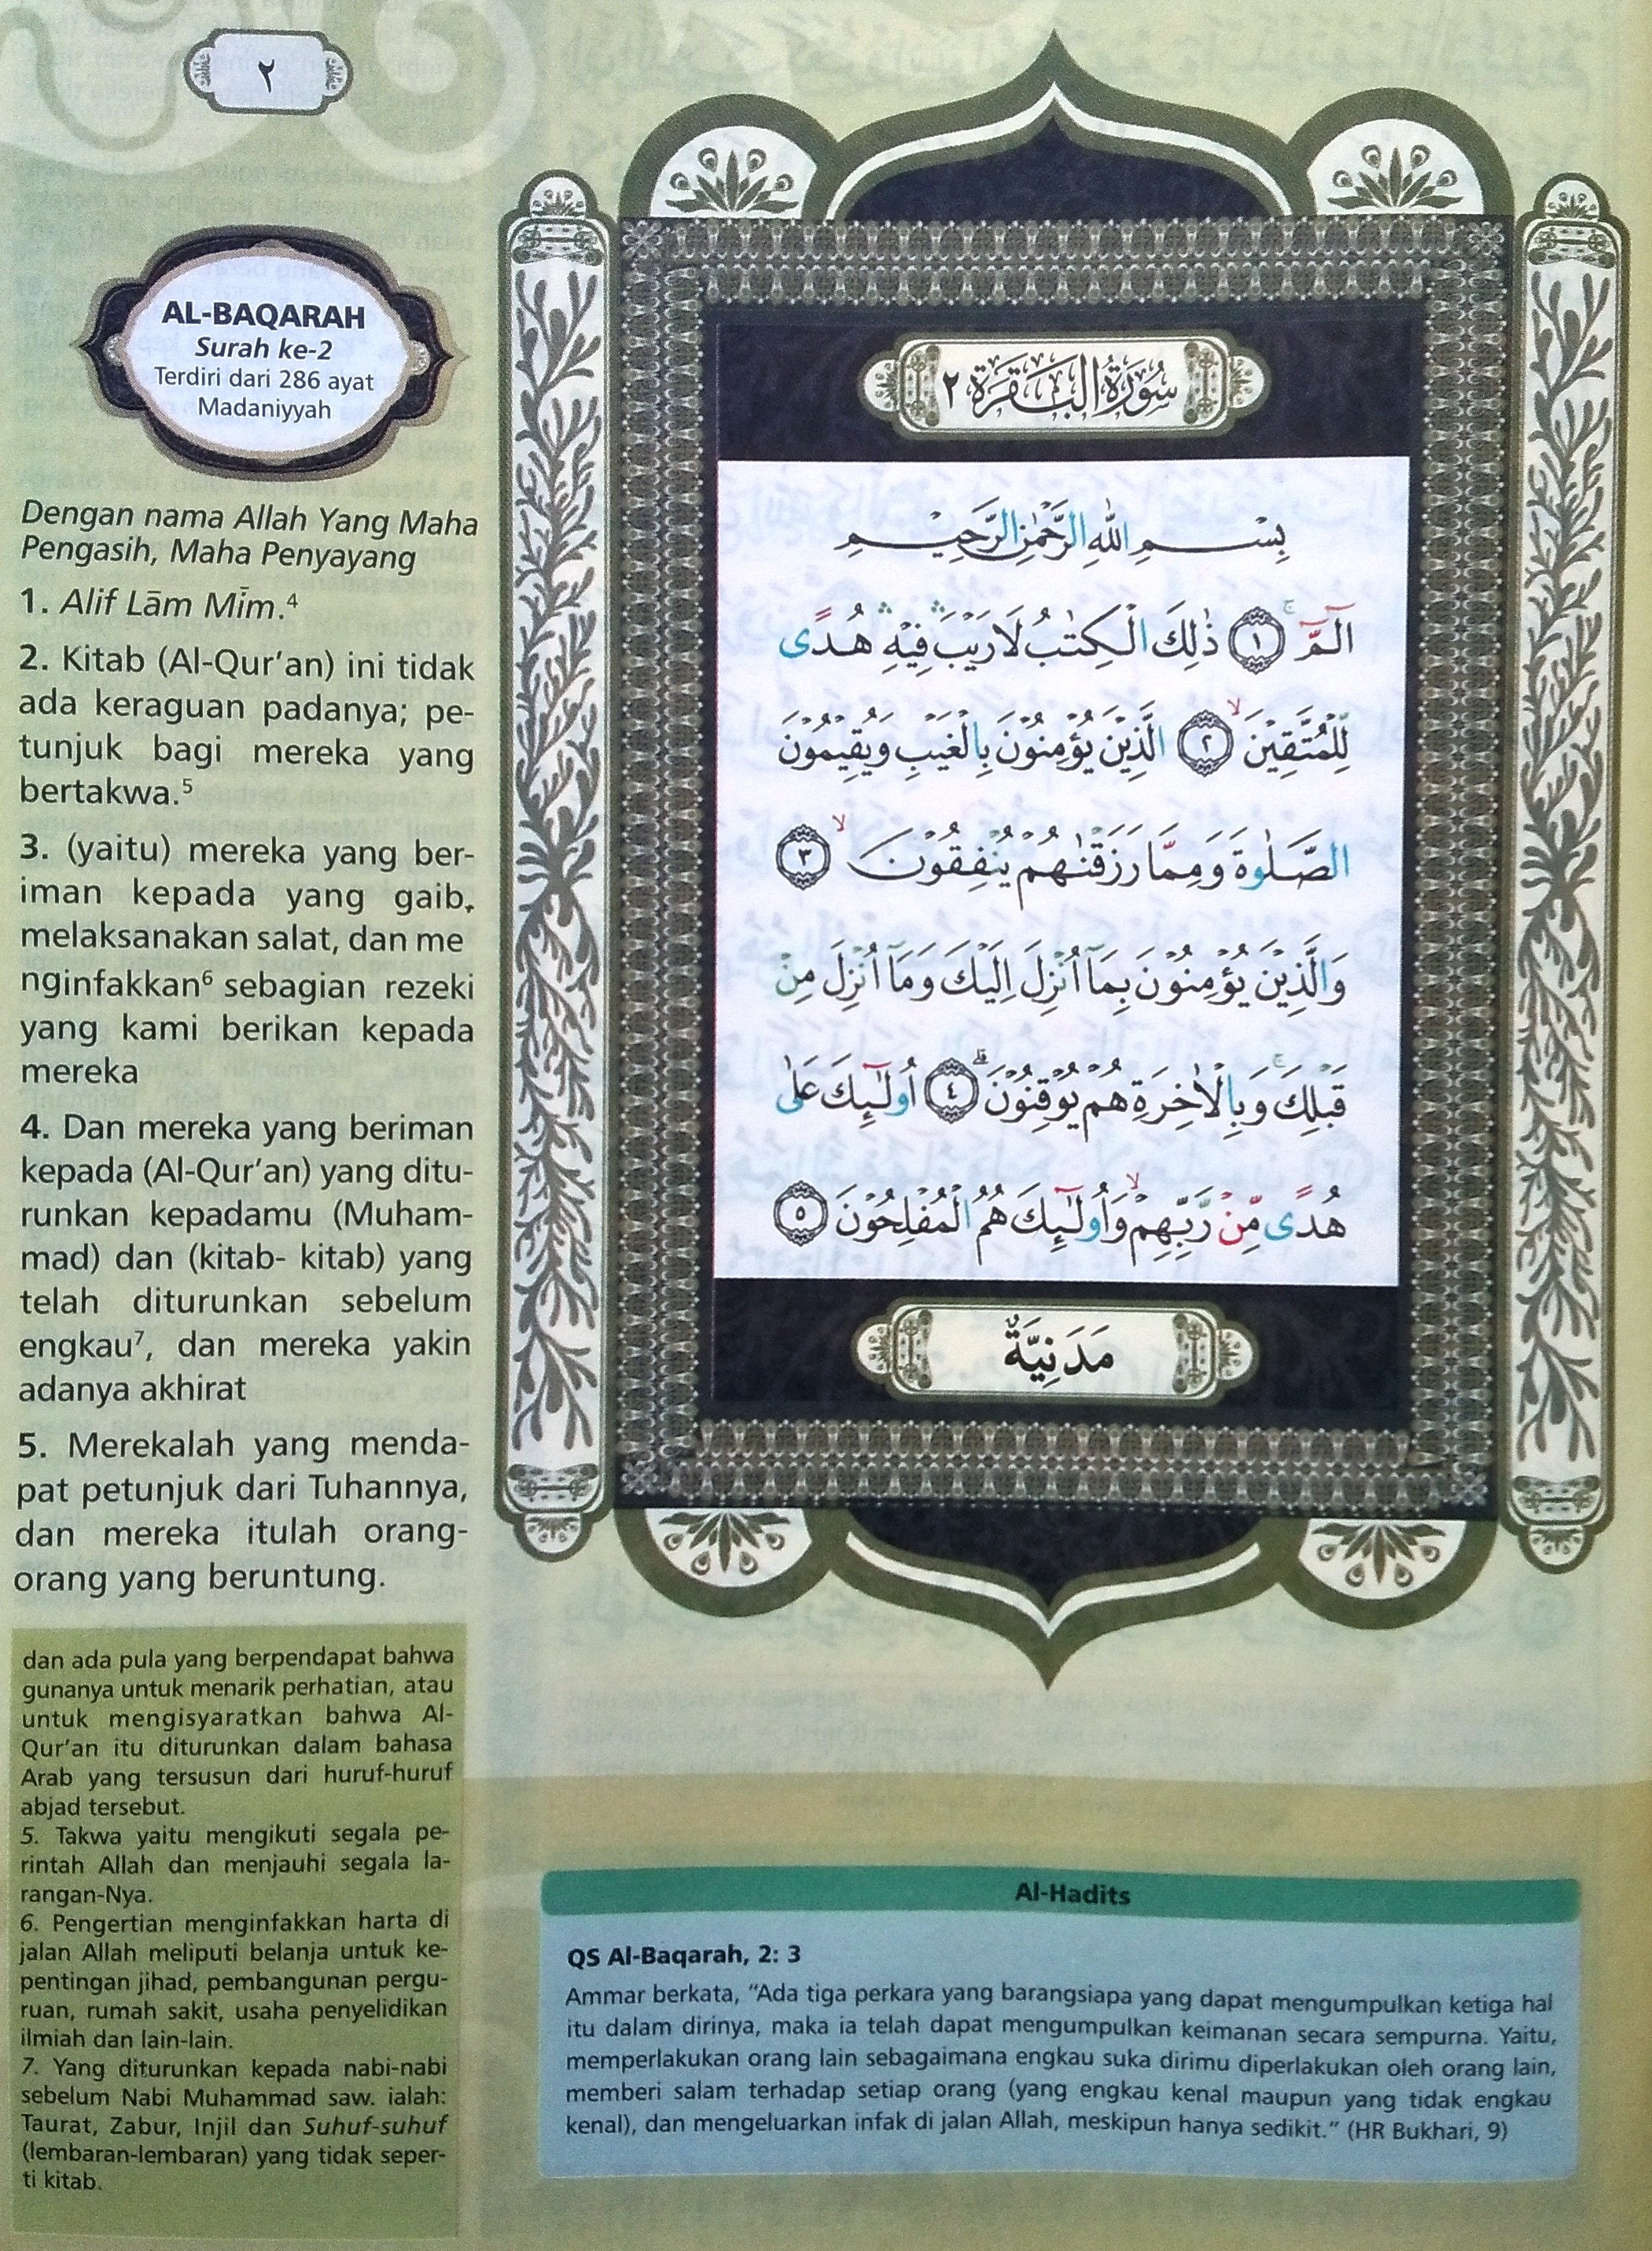 ٢
AL-BAQARAH
Surah ke-2
Terdiri dari 286 ayat
Madaniyyah
Dengan nama Allah Yang Maha
Pengasih, Maha Penyayang
1. Alif Lām Mīm.⁴
2. Kitab (Al-Qur’an) ini tidak
ada keraguan padanya; pe-
tunjuk bagi mereka yang
bertakwa.⁵
3. (yaitu) mereka yang ber-
iman kepada yang gaib,
melaksanakan salat, dan me
nginfakkan⁶ sebagian rezeki
yang kami berikan kepada
mereka
4. Dan mereka yang beriman
kepada (Al-Qur’an) yang ditu-
runkan kepadamu (Muham-
mad) dan (kitab- kitab) yang
telah diturunkan sebelum
engkau⁷, dan mereka yakin
adanya akhirat
5. Merekalah yang menda-
pat petunjuk dari Tuhannya,
dan mereka itulah orang-
orang yang beruntung.
dan ada pula yang berpendapat bahwa
gunanya untuk menarik perhatian, atau
untuk mengisyaratkan bahwa Al-
Qur’an itu diturunkan dalam bahasa
Arab yang tersusun dari huruf-huruf
abjad tersebut.
5. Takwa yaitu mengikuti segala pe-
rintah Allah dan menjauhi segala la-
rangan-Nya.
6. Pengertian menginfakkan harta di
jalan Allah meliputi belanja untuk ke-
pentingan jihad, pembangunan pergu-
ruan, rumah sakit, usaha penyelidikan
ilmiah dan lain-lain.
7. Yang diturunkan kepada nabi-nabi
sebelum Nabi Muhammad saw. ialah:
Taurat, Zabur, Injil dan Suhuf-suhuf
(lembaran-lembaran) yang tidak seper-
ti kitab.
سُوْرَةُ الْبَقَرَة ٢
بِسْمِ اللّٰهِ الرَّحْمٰنِ الرَّحِيْمِ
الۤمّۤ ۚ ۝١ ذٰلِكَ الْكِتٰبُ لَا رَيْبَ ۛ فِيْهِ ۛ هُدًى
لِّلْمُتَّقِيْنَ ۙ ۝٢ الَّذِيْنَ يُؤْمِنُوْنَ بِالْغَيْبِ وَيُقِيْمُوْنَ
الصَّلٰوةَ وَمِمَّا رَزَقْنٰهُمْ يُنْفِقُوْنَ ۙ ۝٣
وَالَّذِيْنَ يُؤْمِنُوْنَ بِمَآ اُنْزِلَ اِلَيْكَ وَمَآ اُنْزِلَ مِنْ
قَبْلِكَ ۚ وَبِالْاٰخِرَةِ هُمْ يُوْقِنُوْنَ ۗ ۝٤ اُولٰۤىِٕكَ عَلٰى
هُدًى مِّنْ رَّبِّهِمْ ۙ وَاُولٰۤىِٕكَ هُمُ الْمُفْلِحُوْنَ ۝٥
مَدَنِيَّةٌ
Al-Hadits
QS Al-Baqarah, 2: 3
Ammar berkata, “Ada tiga perkara yang barangsiapa yang dapat mengumpulkan ketiga hal
itu dalam dirinya, maka ia telah dapat mengumpulkan keimanan secara sempurna. Yaitu,
memperlakukan orang lain sebagaimana engkau suka dirimu diperlakukan oleh orang lain,
memberi salam terhadap setiap orang (yang engkau kenal maupun yang tidak engkau
kenal), dan mengeluarkan infak di jalan Allah, meskipun hanya sedikit.” (HR Bukhari, 9)